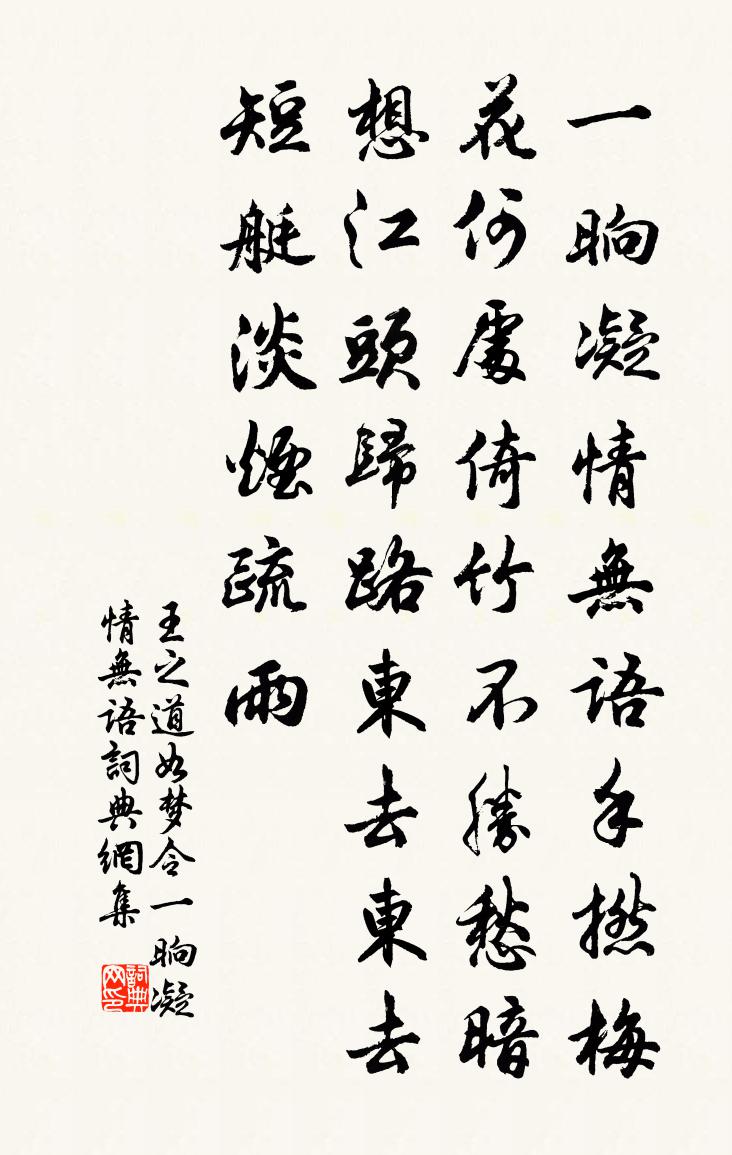 一晌凝情無語手撚梅
花何處倚竹不勝愁暗
想江頭歸路東去東去
短艇淡煙疏雨
王之道如梦令一晌凝
情無语詞典網集
詞典网印